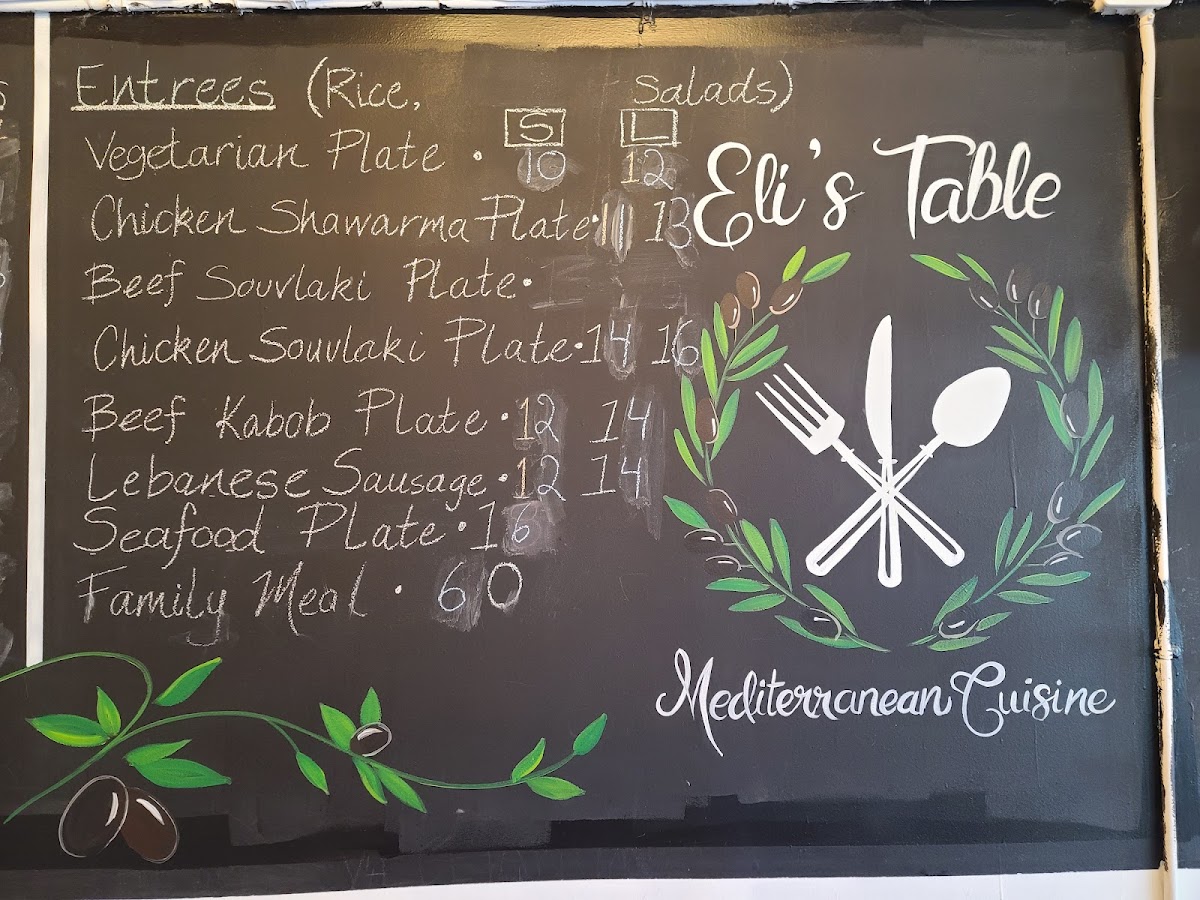 Entrees (Rice, Salads)
S L
Vegetarian Plate • 10 12
Chicken Shawarma Plate • 11 13
Beef Souvlaki Plate •
Chicken Souvlaki Plate • 14 16
Beef Kabob Plate • 12 14
Lebanese Sausage • 12 14
Seafood Plate • 16
Family Meal • 60
Eli's Table
Mediterranean Cuisine